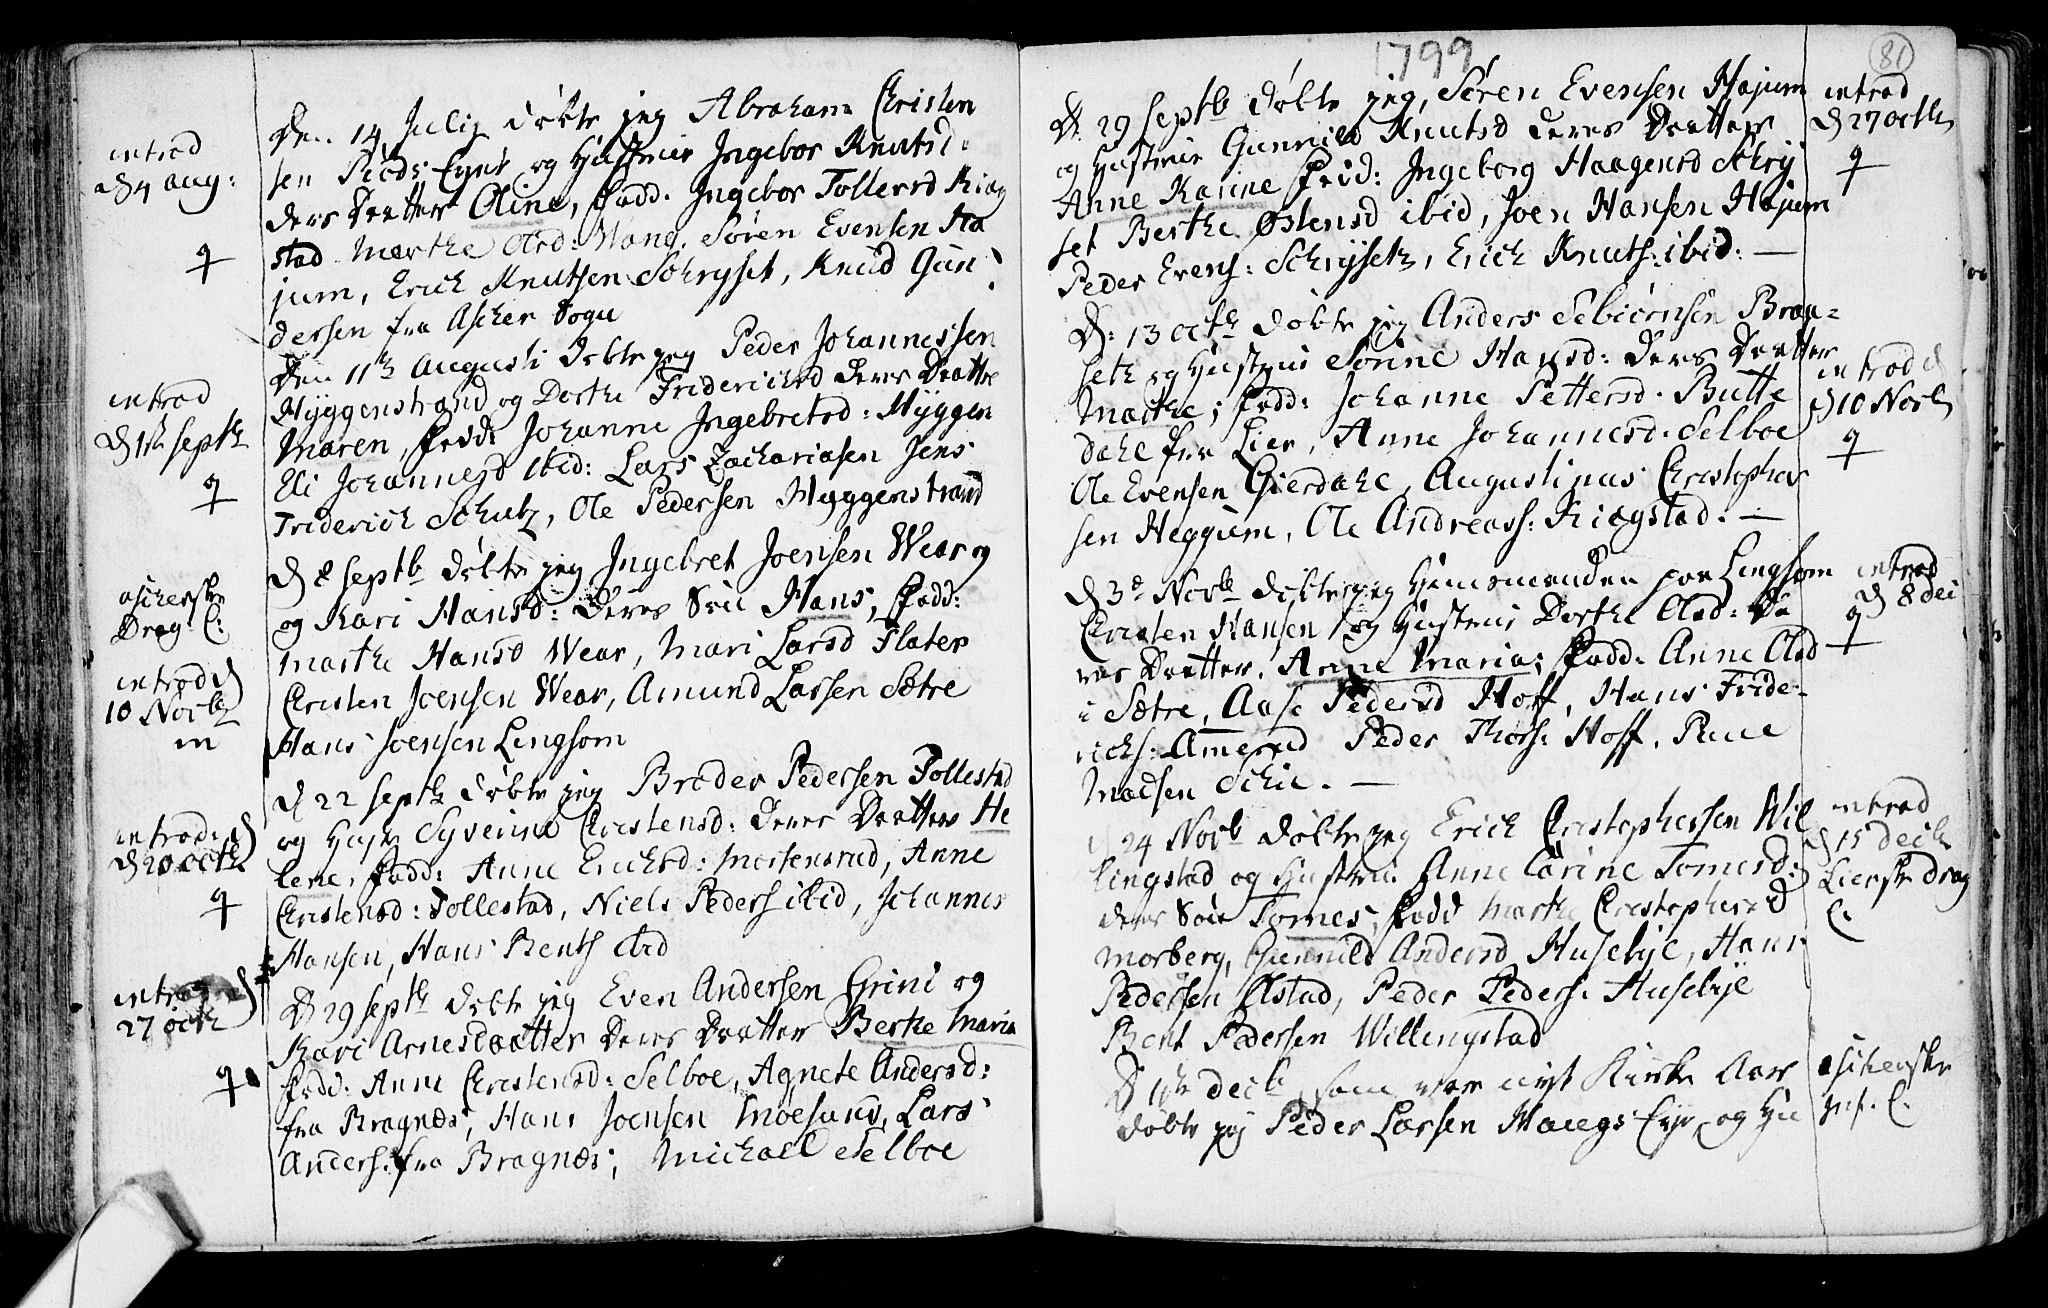 introd
d 4 aug:
Den 14 Julij døbte jeg Abraham Christen
sen Eyer og Hustrue Ingebor Knutsd:
ders Daatter Oline, fadd. Ingebor Tollersd Kiøg
stad Marthe Olsd: Wang, Søren Evensen Hø
jum, Erich Knutsen Schryset, Knud Gun
dersen fra Ascher Sogn
introd
d 1st septb
Den 11te Augusti døbte jeg Peder Johannessen
Hyggenstrand og Dorthe Friderichsd deres Daatter
Maren, fadd: Johanne Ingebretsd: Hyggen
Eli Johannesd ibid: Lars Zachariasen Jens
Friderich Schutz, Ole Pedersen Hyggenstrand
ascherske
Drag: C:
introd d
10 Novb
m
d 8 septb døbte jeg Ingebret Joensen Wear og
og Kari Hansd: deres Søn Hans, fadd:
Marthe Hansd Wear, Mari Larsd Flater
Christen Joensen Wear, Amund Larsen Sætre
Hans Joensen Lingsom
introd: d
d 20 octb
d 22 septb døbte jeg Broder Pedersen Follestad
og Hustr Syverine Christensd: deres Daatter He
lene, fadd: Anne Erichsd: Mortensrud, Anne
Christensd: Follestad, Niels Peders ibid, Johannes
Hansen, Hans Bents
introd d
27 octb
D 29 septb døbte jeg Even Andersen Grini og
Kari Arnesdaatter deres Daatter Berte Maria
fadd: Anne Christensd: Selboe, Agnete Andersd:
fra Bragnæs, Hans Joensen Moesund, Lars
Anders: fra Bragnæs; Michael Selboe
1799
81
D. 29 septb døbte jeg, Søren Evensen Højum
og Hustrue Gunnild Knutsd deres Daatter
Anne Karine fad: Ingeborg Haagensd Schry
set Berthe Østensd ibid, Joen Hansen Højum
Peder Evens: Schrysetz, Erich Knuts: ibid: —
introd
d 27 octb
D: 13 octb døbte jeg Anders Sebiörnsen Braa=
setz og Hustrue Sønne Hansd: deres Daatter
Marthe; fadd: Johanne Pettersd. Butte
dahl fra Lier, Anne Johannesd: Selboe
Ole Evensen Gierdahl, Augustinus Christophor
sen Heggum, Ole Andreass: Kiøgstad. —
introd d
d 10 Novb
d 3de Novb døbte jeg Huusmanden paa Lingsom
Christen Hansen og Hustrue Dorthe Olsd: De
res Daatter. Anne Maria; fadd: Anne Olsd
i Sætre, Aase Pedersd Hoff, Hans Fride-
richs: Amerud Peder Thors: Hoff, Poul
Madsen Schie. —
introd
d 8 dec
d 24 Novb døbte jeg Erich Christophersen Wil
lingstad og Hustrue Anne Carine Tomesd:
deres Søn Tomes, fadd Marthe Christophersd
Morberg, Gunnild Andersd Husebye, Hans
Pedersen Olstad, Peder Peders: Husebye
Bent Pedersen Willingstad
introd
d 15 decb
Lierske Drag
C:
D 1ste decb, som var nyt Kirke Aar
døbte jeg Peder Larsen Haugs Eyer, og Hu
ascherske
Inf. C.